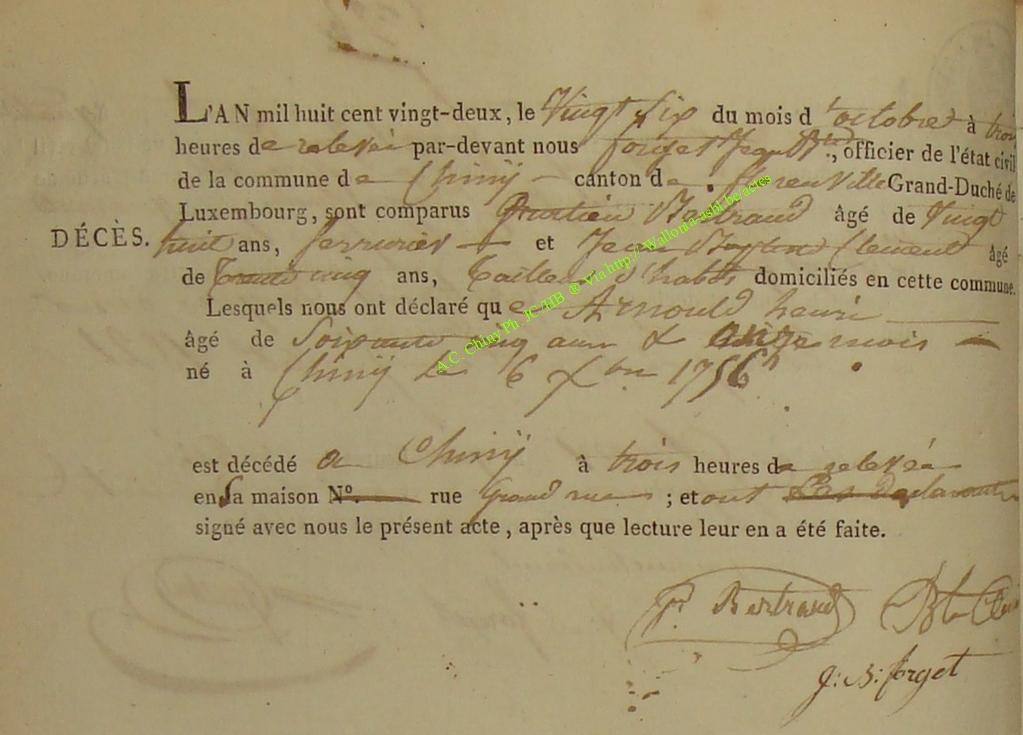 L'AN mil huit cent vingt-deux, le Vingt six du mois d'octobre à trois
heures de relevée par-devant nous forget Jean Bte, officier de l'état civil
de la commune de Chiny canton de florenville Grand-Duché de
Luxembourg, sont comparus Bertrand âgé de Vingt
DÉCÈS.
huit ans, serrurier et Jean Baptiste Clement âgé
de trente cinq ans, tailleur d'habits domiciliés en cette commune.
Lesquels nous ont déclaré que Arnould henri
âgé de Soixante cinq ans & onze mois
né à Chiny le 6 Xbre 1756
est décédé a Chiny à trois heures de relevée
en Sa maison N°. rue Grand rue ; et ont Les Declarants
signé avec nous le présent acte, après que lecture leur en a été faite.
P. Bertrand Bte
J: B: forget
A.C. Chiny Ph. JC HB @ Via http://Wallonia-asbl.be/actes